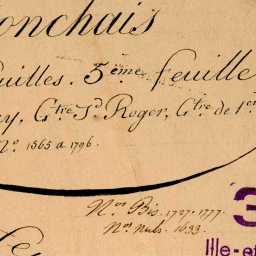 onchais
uilles. 5ème feuille
y, Gtre Jd Roger, Gtre de 1er
No 1565 a 1796.
Nos Bis. 1797. 1777.
Nos nuls. 1633.
3
Ille-et